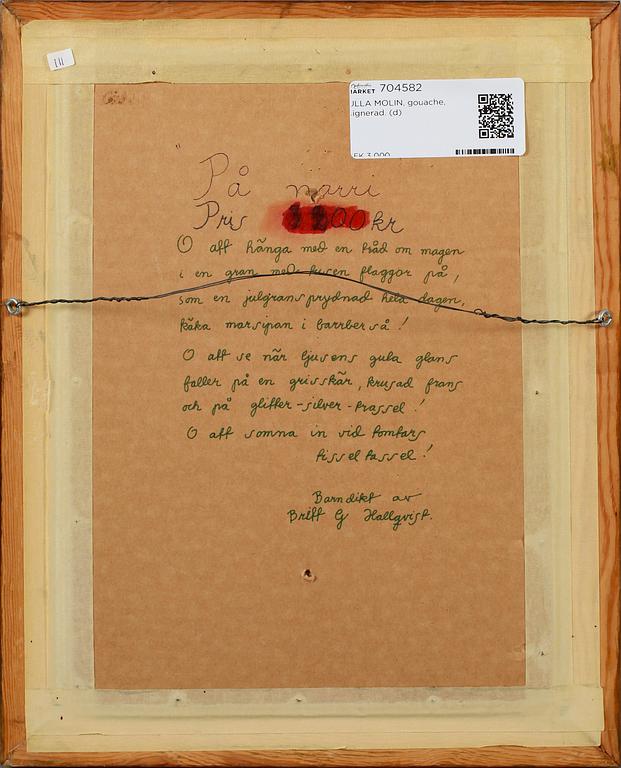 III
MARKET 704582
ULLA MOLIN, gouache,
signerad. (d)
SEK 3 000
På narri
Pris 1200 kr
O att hänga med en tråd om magen
i en gran med tusen flaggor på,
som en julgransprydnad hela dagen,
käka marsipan i barrberså!
O att se när ljusens gula glans
faller på en grisskär, krusad frans
och på glitter-silver-trassel!
O att somna in vid tomtars
tissel tassel!
Barndikt av
Britt G Hallqvist.